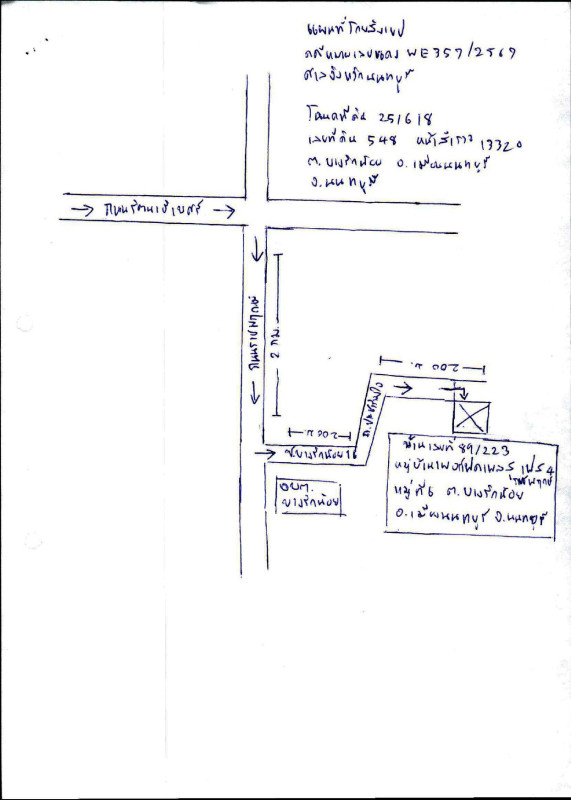 แผนที่โดยสังเขป
คดีหมายเลขแดง ผE357/2567
ศาลจังหวัดนนทบุรี
โฉนดที่ดิน 251618
เลขที่ดิน 548 หน้าสำรวจ 13320
ต.บางรักน้อย อ.เมืองนนทบุรี
จ.นนทบุรี
ถนนรัตนาธิเบศร์
ถนนราชพฤกษ์
2 กม.
200 ม.
200 ม.
ซ.บางรักน้อย 16
อบต.
บางรักน้อย
บ้านเลขที่ 89/223
หมู่ที่ 6 ต.บางรักน้อย
อ.เมืองนนทบุรี จ.นนทบุรี